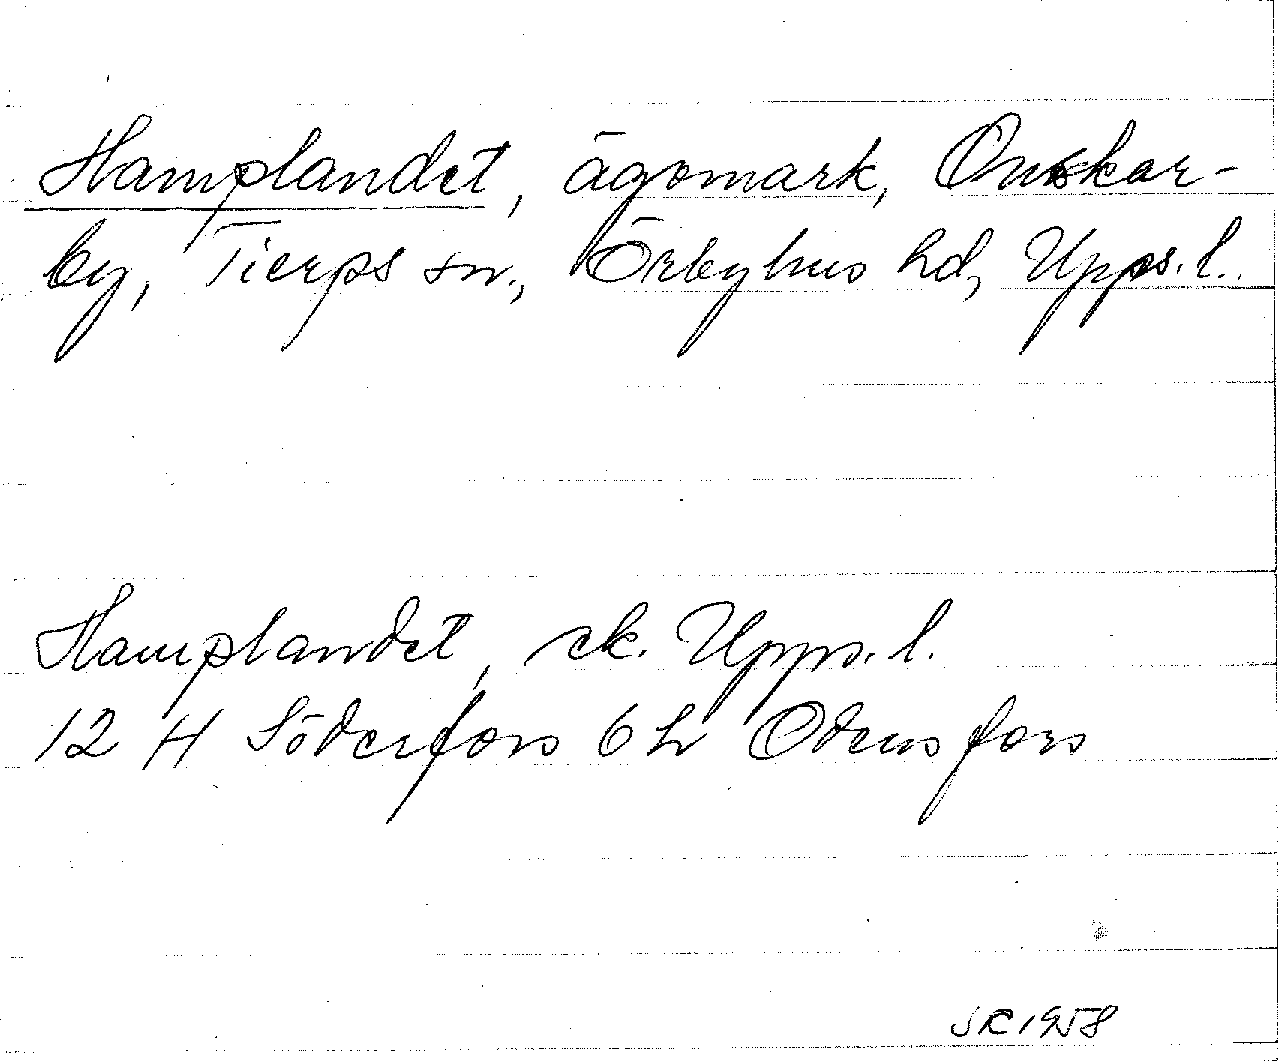 Hamplandet, ägomark, Onskar-
by, Tierps sn., Örbyhus hd, Upps. l.
Hamplandet, ek. Upps. l.
12 H Söderfors 6 h Odensfors
SR 1958